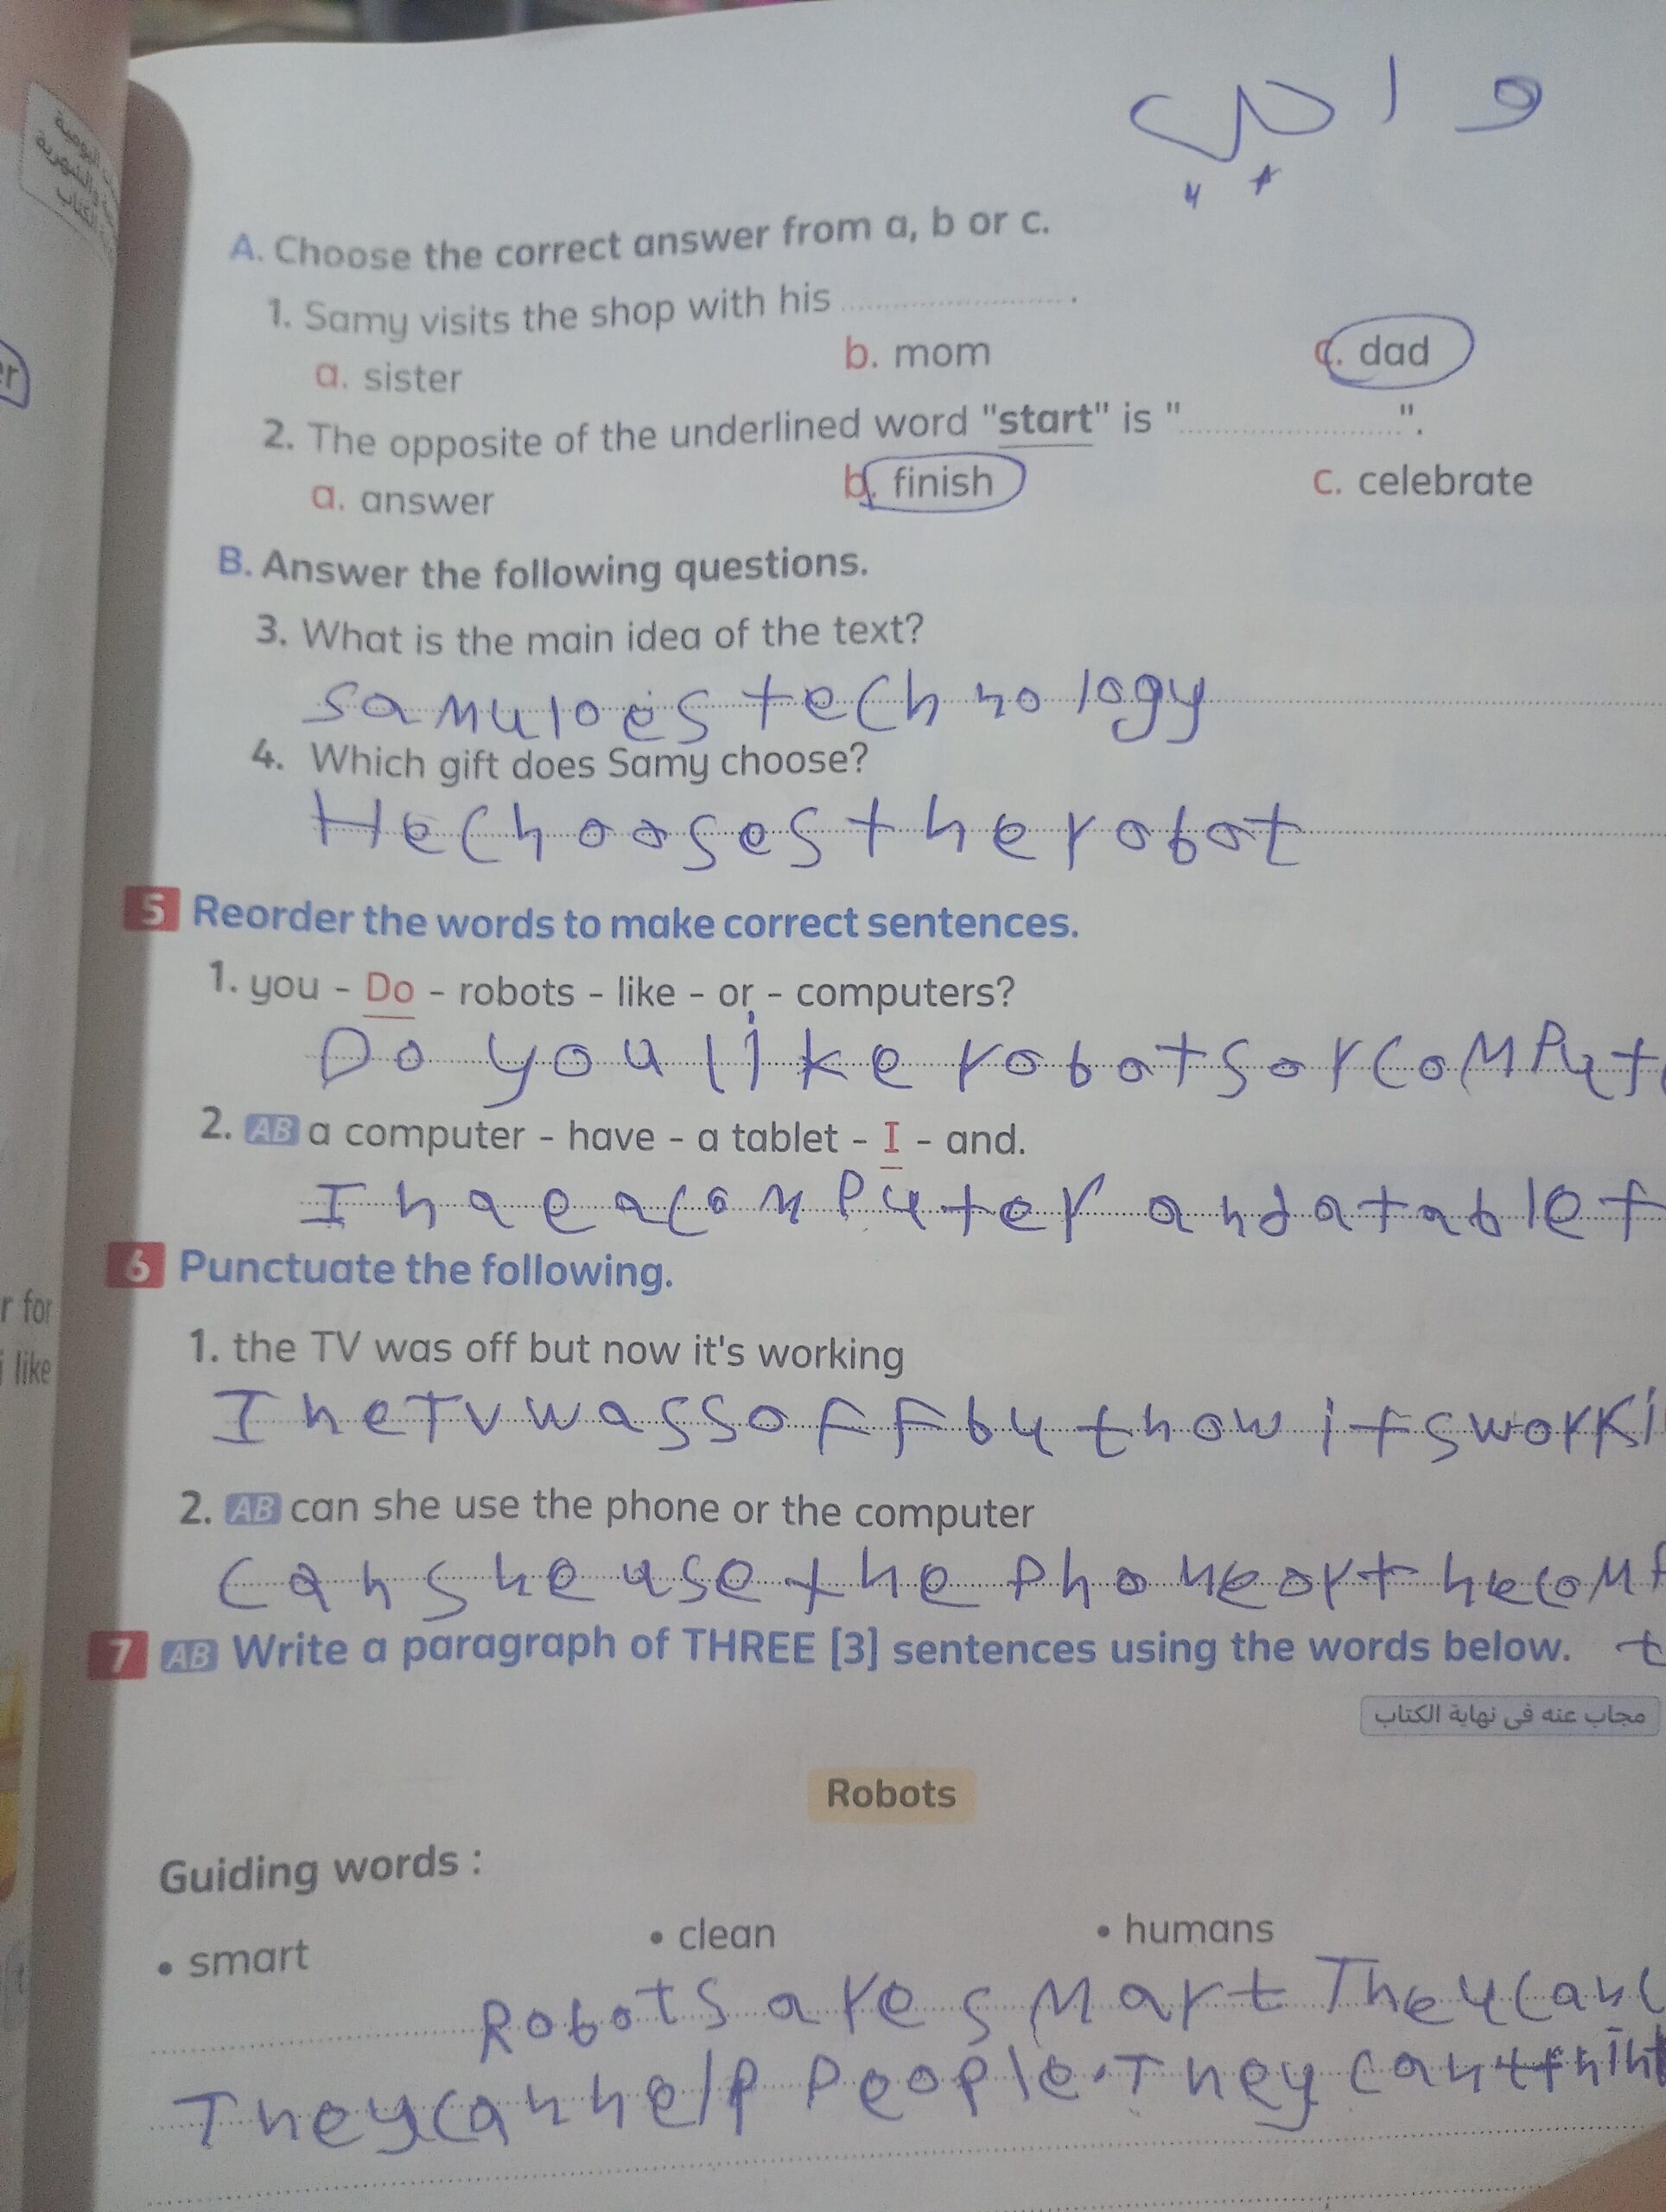 واجب
A. Choose the correct answer from a, b or c.
1. Samy visits the shop with his .
a. sister b. mom c. dad
2. The opposite of the underlined word "start" is " ".
a. answer b. finish c. celebrate
B. Answer the following questions.
3. What is the main idea of the text?
samuloes technology
4. Which gift does Samy choose?
He chooses the robot
5 Reorder the words to make correct sentences.
1. you - Do - robots - like - or - computers?
Do you like robots or comput
2. AB a computer - have - a tablet - I - and.
I hae a computer and a tablet
6 Punctuate the following.
1. the TV was off but now it's working
Ihe TV wass off but how itsworki
r for
i like
2. AB can she use the phone or the computer
Can she use the phone or the comp
7 AB Write a paragraph of THREE [3] sentences using the words below.
مجاب عنه فى نهاية الكتاب
Robots
Guiding words :
• smart • clean • humans
Robots are smart They can c
They can help people. They can't